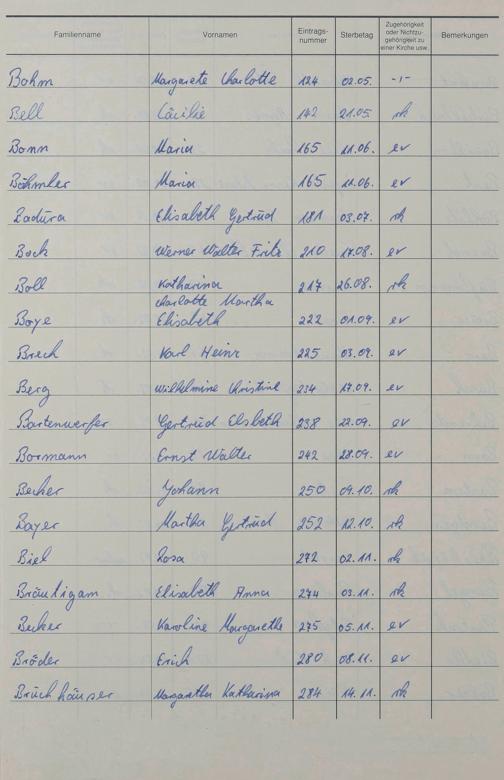 Familienname Vornamen Eintrags-nummer Sterbetag Zugehörigkeit oder Nichtzu-gehörigkeit zu einer Kirche usw. Bemerkungen
Bohm Margarete Charlotte 124 02.05. -"-
Bell Cäcilie 142 21.05. rk
Bonn Maria 165 11.06. ev
Böhmler Maria 165 11.06. ev
Badura Elisabeth Gertrud 181 03.07. rk
Bock Werner Walter Fritz 210 17.08. ev
Boll Katharina 217 26.08. rk
Charlotte Martha
Boye Elisabeth 222 01.09. ev
Brech Karl Heinz 225 03.09. ev
Berg Wilhelmine Christine 234 17.09. ev
Bartenwerfer Gertrud Elsbeth 238 22.09. ev
Bormann Ernst Walter 242 28.09. ev
Becker Johann 250 09.10. rk
Bayer Martha Gertrud 252 12.10. rk
Biel Rosa 272 02.11. rk
Bräutigam Elisabeth Anna 274 03.11. rk
Becker Karoline Margarethe 275 05.11. ev
Bröder Erich 280 08.11. ev
Brückhäuser Margaretha Katharina 284 14.11. rk